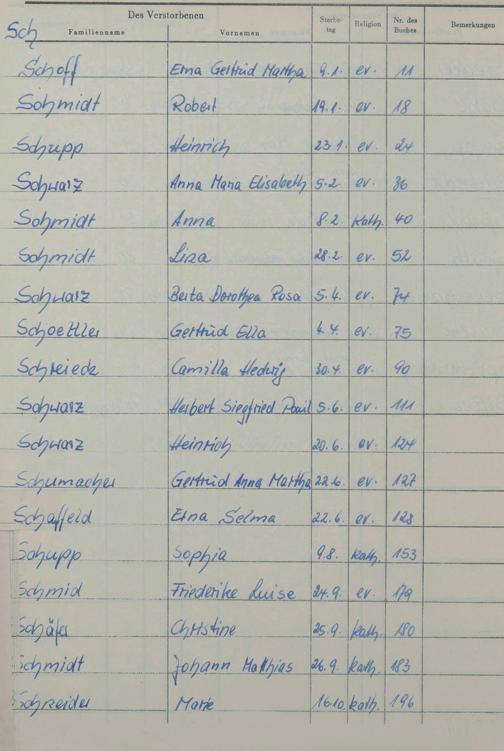 Sch
Des Verstorbenen Sterbe-tag Religion Nr. des Buches Bemerkungen
Familienname Vornamen
Schoff Erna Gertrud Martha 9.1. ev. 11
Schmidt Robert 19.1. ev. 18
Schupp Heinrich 23.1. ev. 24
Schwarz Anna Maria Elisabeth 5.2. ev. 36
Schmidt Anna 8.2. Kath. 40
Schmidt Liza 28.2. ev. 52
Schwarz Berta Dorothea Rosa 5.4. ev. 74
Schoettler Gertrud Ella 4.4. ev. 75
Schreieck Camilla Hedwig 30.4. ev. 90
Schwarz Herbert Siegfried Paul 5.6. ev. 111
Schwarz Heinrich 20.6. ev. 124
Schumacher Gertrud Anna Martha 22.6. ev. 127
Schaffeld Erna Selma 22.6. ev. 128
Schupp Sophia 9.8. kath. 153
Schmid Friederike Luise 24.9. ev. 179
Schäfer Christine 25.9. kath. 180
Schmidt Johann Matthias 26.9. kath. 183
Schneider Marie 16.10. kath. 196